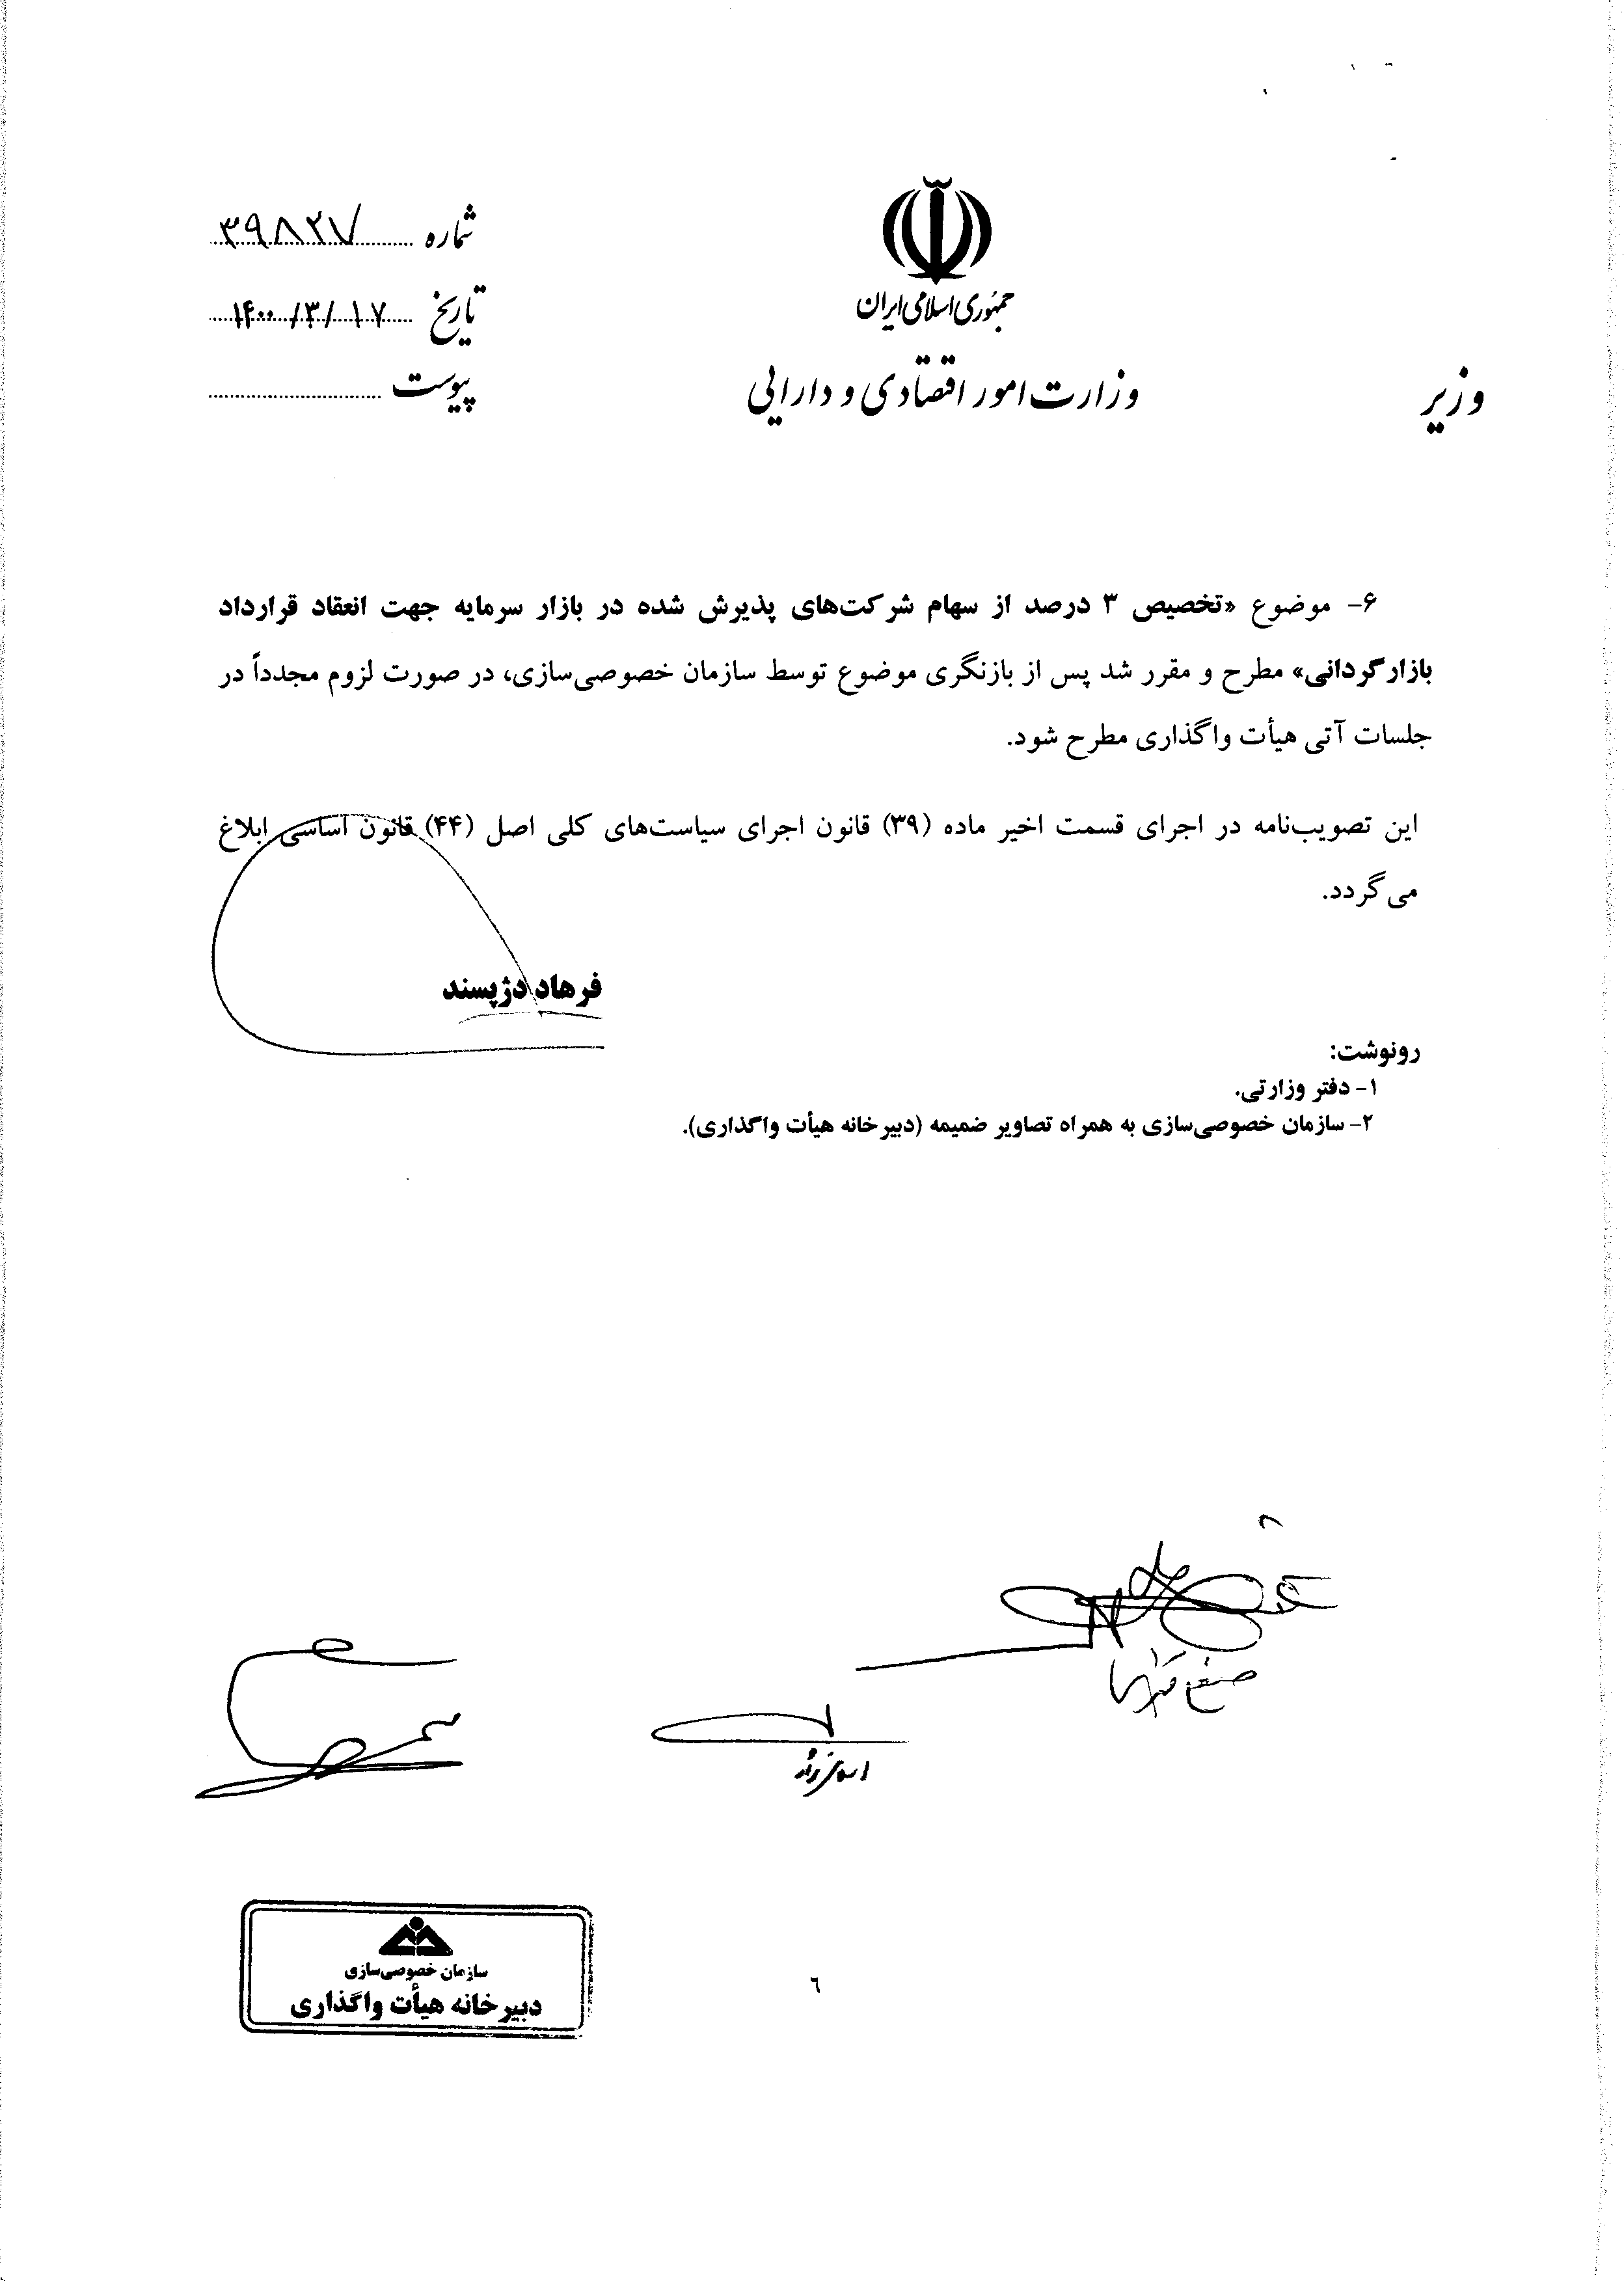 جمهوری اسلامی ایران
وزارت امور اقتصادی و دارایی
وزیر
شماره ۳۹۸۲۷
تاریخ ۱۴۰۰/۳/۱۷
پیوست
۶- موضوع «تخصیص ۳ درصد از سهام شرکت‌های پذیرش شده در بازار سرمایه جهت انعقاد قرارداد
بازارگردانی» مطرح و مقرر شد پس از بازنگری موضوع توسط سازمان خصوصی‌سازی، در صورت لزوم مجدداً در
جلسات آتی هیأت واگذاری مطرح شود.
این تصویب‌نامه در اجرای قسمت اخیر ماده (۳۹) قانون اجرای سیاست‌های کلی اصل (۴۴) قانون اساسی ابلاغ
می‌گردد.
فرهاد دژپسند
رونوشت:
۱- دفتر وزارتی.
۲- سازمان خصوصی‌سازی به همراه تصاویر ضمیمه (دبیرخانه هیأت واگذاری).
سازمان خصوصی‌سازی
دبیرخانه هیأت واگذاری
٦